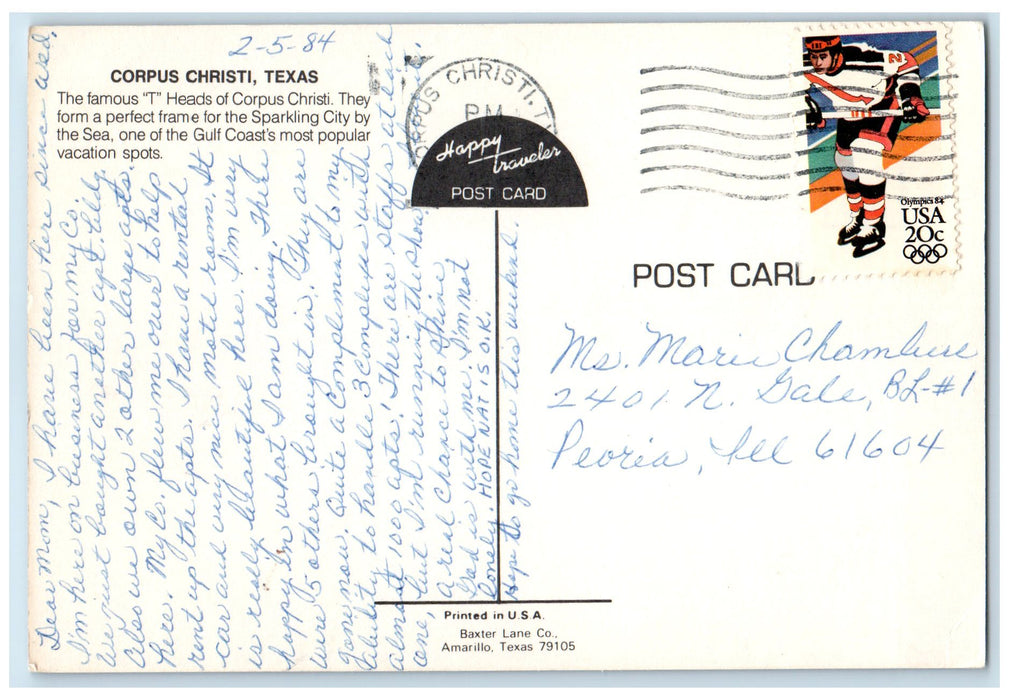 2-5-84
CORPUS CHRISTI, TEXAS
The famous "T" Heads of Corpus Christi. They
form a perfect frame for the Sparkling City by
the Sea, one of the Gulf Coast's most popular
vacation spots.
Dear Mom, I have been here since Wed.
I'm here on business for my Co.
We just bought another apt. Cplx.
Also we own 2 other large apts.
here. My Co. flew me over to help
rent up the apts. I have a rental
car and very nice motel room. It
is really beautiful here. I'm very
happy in what I am doing. There
were 5 others brought in. They are
gone now. Quite a Compliment to my
ability to handle 3 complexes with
almost 1000 apts! There are staffs at each
one, but I'm running the show,
a real chance to shine.
God is with me. I'm not
lonely. HOPE NAT IS O.K.
Hope to go home this weekend.
CORPUS CHRISTI, TX
PM
Happy
Traveler
POST CARD
Olympics 84
USA
20c
POST CARD
Ms. Marie
2401 N. Gale, BL-#1
Peoria, Ill 61604
Printed in U.S.A.
Baxter Lane Co.,
Amarillo, Texas 79105